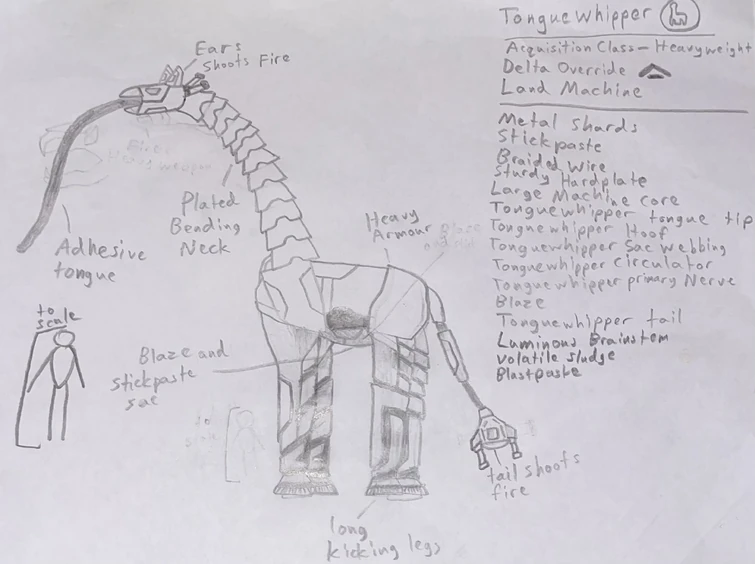 Tonguewhipper
Acquisition Class - Heavyweight
Delta Override
Land Machine
Metal Shards
Stickpaste
Braided Wire
Sturdy Hardplate
Large Machine core
Tonguewhipper tongue tip
Tonguewhipper Hoof
Tonguewhipper Sac Webbing
Tonguewhipper Circulator
Tonguewhipper primary Nerve
Blaze
Tonguewhipper tail
Luminous Brainstem
Volatile Sludge
Blastpaste
Ears
Shoots Fire
Plated
Bending
Neck
Adhesive
tongue
Heavy
Armour
to
scale
Blaze and
stickpaste
sac
to
scale
tail shoots
fire
long
kicking legs